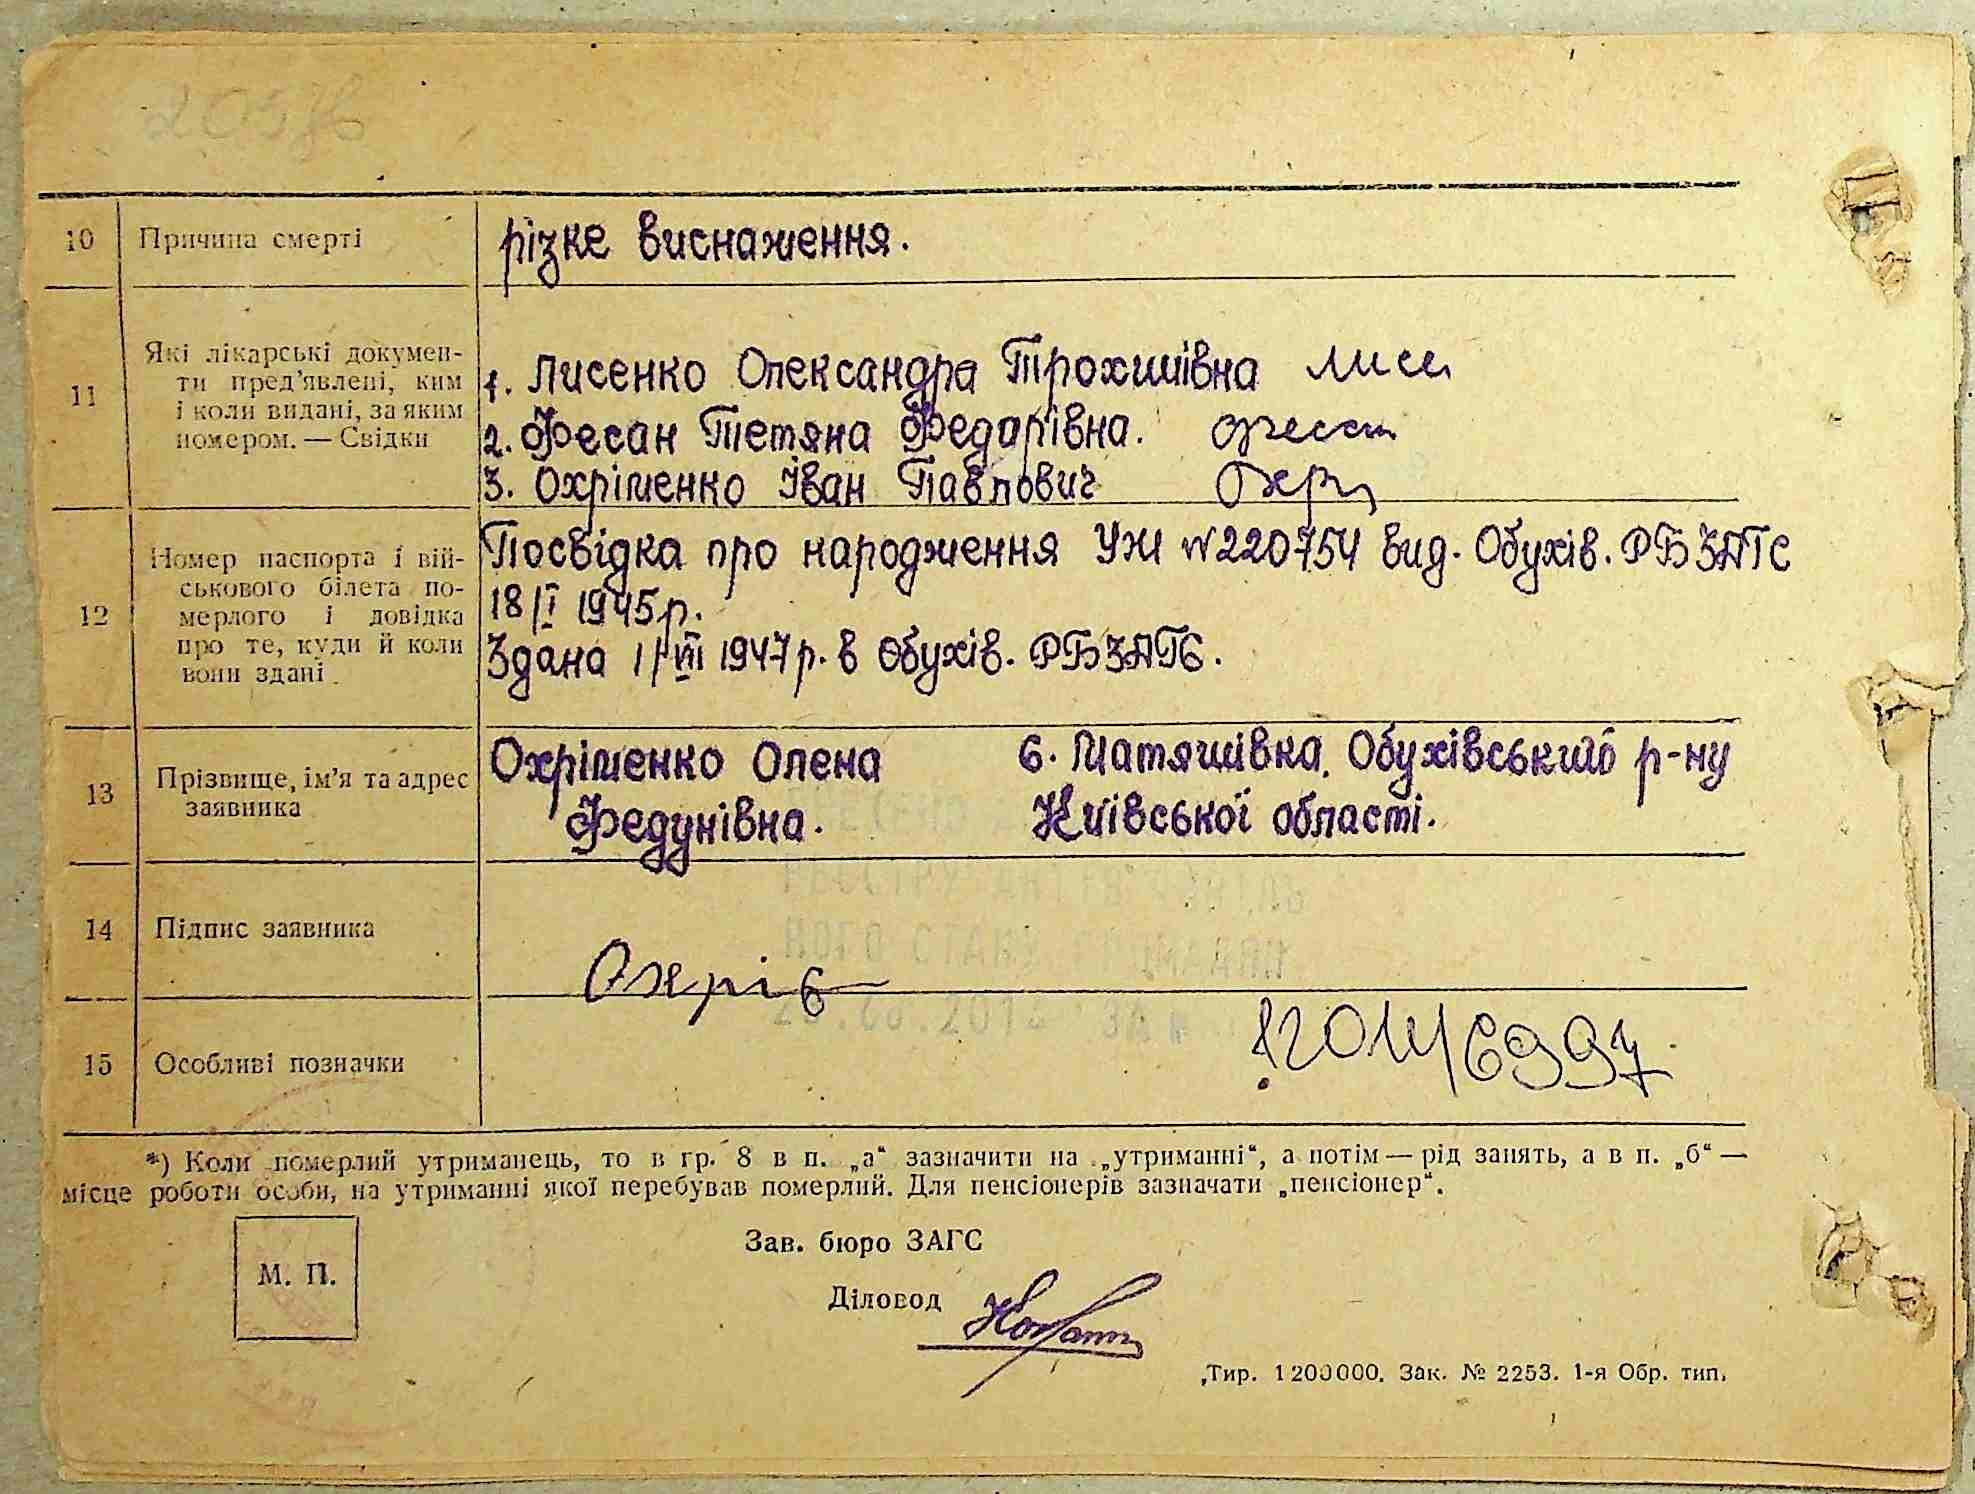 10 Причина смерті різке виснаження.
11 Які лікарські документи пред'явлені, ким і коли видані, за яким номером. — Свідки
1. Лисенко Олександра Трохимівна Лисен
2. Фесан Тетяна Федарівна.
3. Охріменко Іван Павлович Охрі
12 Номер паспорта і військового білета померлого і довідка про те, куди й коли вони здані
Посвідка про народження УЖ N220754 вид. Обухів. РБЗАГС
18/I 1945р.
Здана 1/VII 1947р. в Обухів. РБЗАГС.
13 Прізвище, ім'я та адрес заявника
Охріменко Олена с. Матяшівка, Обухівський р-ну
Федунівна. Київської області.
14 Підпис заявника
Охрів
15 Особливі позначки
*) Коли померлий утриманець, то в гр. 8 в п. „а“ зазначити на „утриманні“, а потім — рід занять, а в п. „б“ —
місце роботи особи, на утриманні якої перебував померлий. Для пенсіонерів зазначати „пенсіонер“.
М. П.
Зав. бюро ЗАГС
Діловод
Тир. 1200000. Зак. № 2253. 1-я Обр. тип.